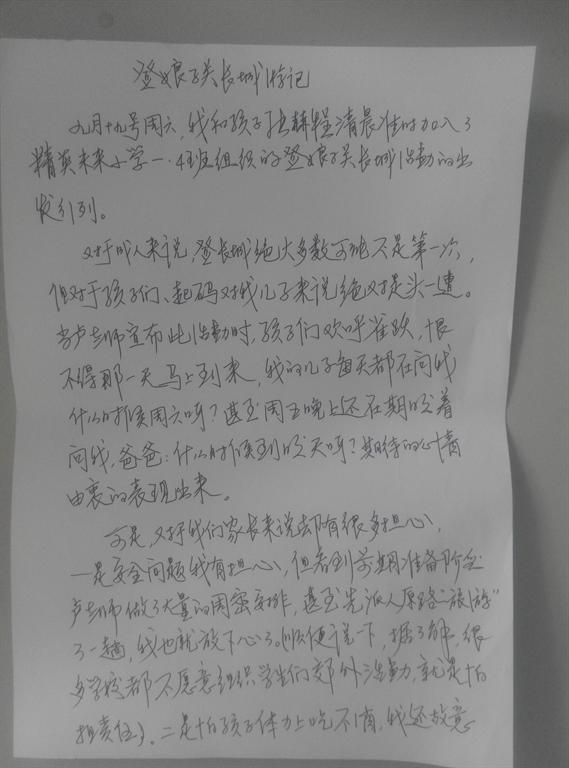 登娘子关长城游记
九月十九号周六，我和孩子张赫程清晨准时加入了
精英未来小学一·4班组织的登娘子关长城活动的出
发行列。
对于成人来说，登长城绝大多数可能不是第一次，
但对于孩子们、起码对我儿子来说绝对是头一遭。
当卢老师宣布此活动时，孩子们欢呼雀跃，恨
不得那一天马上到来，我的儿子每天都在问我
什么时候周六呀？甚至周五晚上还在期盼着
问我，爸爸：什么时候到明天呀？期待的心情
由衷的表现出来。
可是，对于我们家长来说却有很多担心，
一是安全问题我有担心，但看到前期准备阶段
卢老师做了大量的周密安排，甚至先派人原路“旅游”
了一趟，我也就放下心了。(顺便说一下，据了解，很
多学校都不愿意组织学生们郊外活动，就是怕
担责任)、二是怕孩子体力上吃不消，我还故意